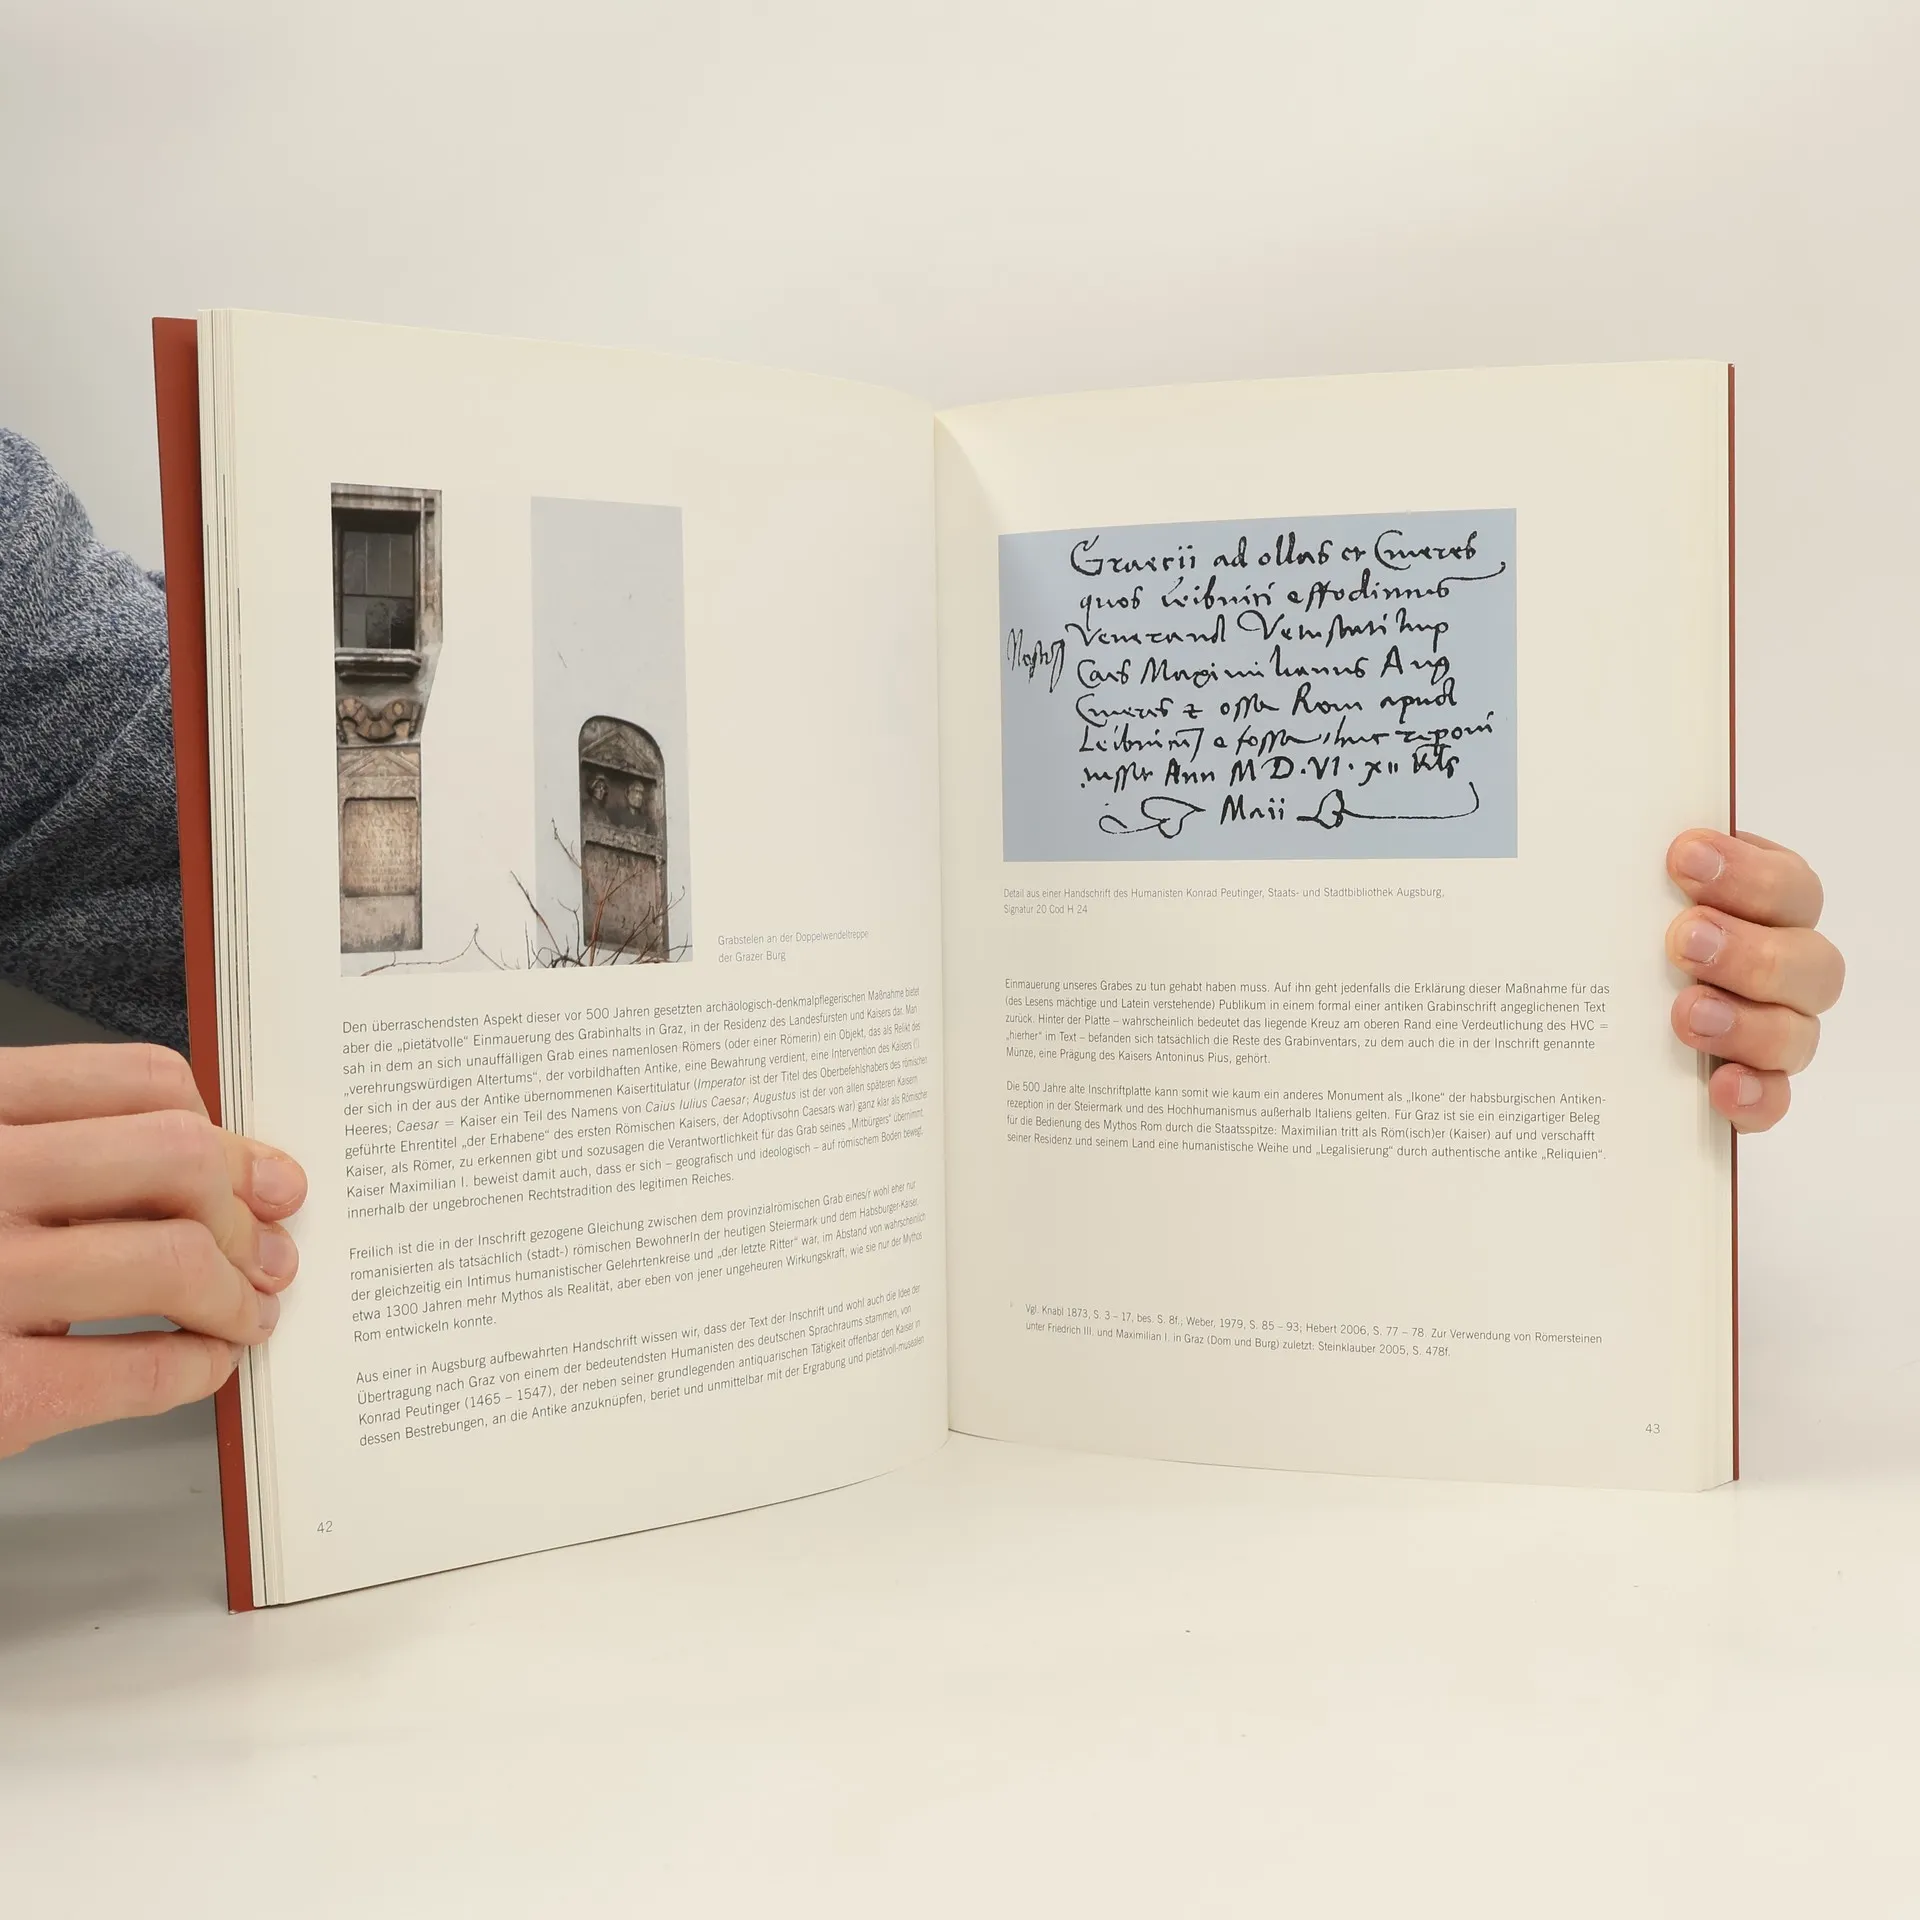 Grabstelen an der Doppelwendeltreppe
der Grazer Burg
Den überraschendsten Aspekt dieser vor 500 Jahren gesetzten archäologisch-denkmalpflegerischen Maßnahme bietet
aber die „pietätvolle“ Einmauerung des Grabinhalts in Graz, in der Residenz des Landesfürsten und Kaisers dar. Man
sah in dem an sich unauffälligen Grab eines namenlosen Römers (oder einer Römerin) ein Objekt, das als Relikt des
„verehrungswürdigen Altertums“, der vorbildhaften Antike, eine Bewahrung verdient, eine Intervention des Kaisers (!),
der sich in der aus der Antike übernommenen Kaisertitulatur (Imperator ist der Titel des Oberbefehlshabers des römischen
Heeres; Caesar = Kaiser ein Teil des Namens von Caius Iulius Caesar; Augustus ist der von allen späteren Kaisern
geführte Ehrentitel „der Erhabene“ des ersten Römischen Kaisers, der Adoptivsohn Caesars war) ganz klar als Römischer
Kaiser, als Römer, zu erkennen gibt und sozusagen die Verantwortlichkeit für das Grab seines „Mitbürgers“ übernimmt.
Kaiser Maximilian I. beweist damit auch, dass er sich – geografisch und ideologisch – auf römischem Boden bewegt,
innerhalb der ungebrochenen Rechtstradition des legitimen Reiches.
Freilich ist die in der Inschrift gezogene Gleichung zwischen dem provinzialrömischen Grab eines/r wohl eher nur
romanisierten als tatsächlich (stadt-) römischen BewohnerIn der heutigen Steiermark und dem Habsburger-Kaiser,
der gleichzeitig ein Intimus humanistischer Gelehrtenkreise und „der letzte Ritter“ war, im Abstand von wahrscheinlich
etwa 1300 Jahren mehr Mythos als Realität, aber eben von jener ungeheuren Wirkungskraft, wie sie nur der Mythos
Rom entwickeln konnte.
Aus einer in Augsburg aufbewahrten Handschrift wissen wir, dass der Text der Inschrift und wohl auch die Idee der
Übertragung nach Graz von einem der bedeutendsten Humanisten des deutschen Sprachraums stammen, von
Konrad Peutinger (1465 – 1547), der neben seiner grundlegenden antiquarischen Tätigkeit offenbar den Kaiser in
dessen Bestrebungen, an die Antike anzuknüpfen, beriet und unmittelbar mit der Ergrabung und pietätvoll-musealen
42
Graecii ad ollas et Cineres
quos Leibnici effodimus
Venerand Vetustati Imp
Caes Maximilianus Aug
Cineres & ossa Rom apud
Leibnicii e fossa huc reponi
iussit Ann M D . VI . XII Kls
Maii
Detail aus einer Handschrift des Humanisten Konrad Peutinger, Staats- und Stadtbibliothek Augsburg,
Signatur 20 Cod H 24
Einmauerung unseres Grabes zu tun gehabt haben muss. Auf ihn geht jedenfalls die Erklärung dieser Maßnahme für das
(des Lesens mächtige und Latein verstehende) Publikum in einem formal einer antiken Grabinschrift angeglichenen Text
zurück. Hinter der Platte – wahrscheinlich bedeutet das liegende Kreuz am oberen Rand eine Verdeutlichung des HVC =
„hierher“ im Text – befanden sich tatsächlich die Reste des Grabinventars, zu dem auch die in der Inschrift genannte
Münze, eine Prägung des Kaisers Antoninus Pius, gehört.
Die 500 Jahre alte Inschriftplatte kann somit wie kaum ein anderes Monument als „Ikone“ der habsburgischen Antiken-
rezeption in der Steiermark und des Hochhumanismus außerhalb Italiens gelten. Für Graz ist sie ein einzigartiger Beleg
für die Bedienung des Mythos Rom durch die Staatsspitze: Maximilian tritt als Röm(isch)er (Kaiser) auf und verschafft
seiner Residenz und seinem Land eine humanistische Weihe und „Legalisierung“ durch authentische antike „Reliquien“.
Vgl. Knabl 1873, S. 3 – 17, bes. S. 8f.; Weber, 1979, S. 85 – 93; Hebert 2006, S. 77 – 78. Zur Verwendung von Römersteinen
unter Friedrich III. und Maximilian I. in Graz (Dom und Burg) zuletzt: Steinklauber 2005, S. 478f.
43